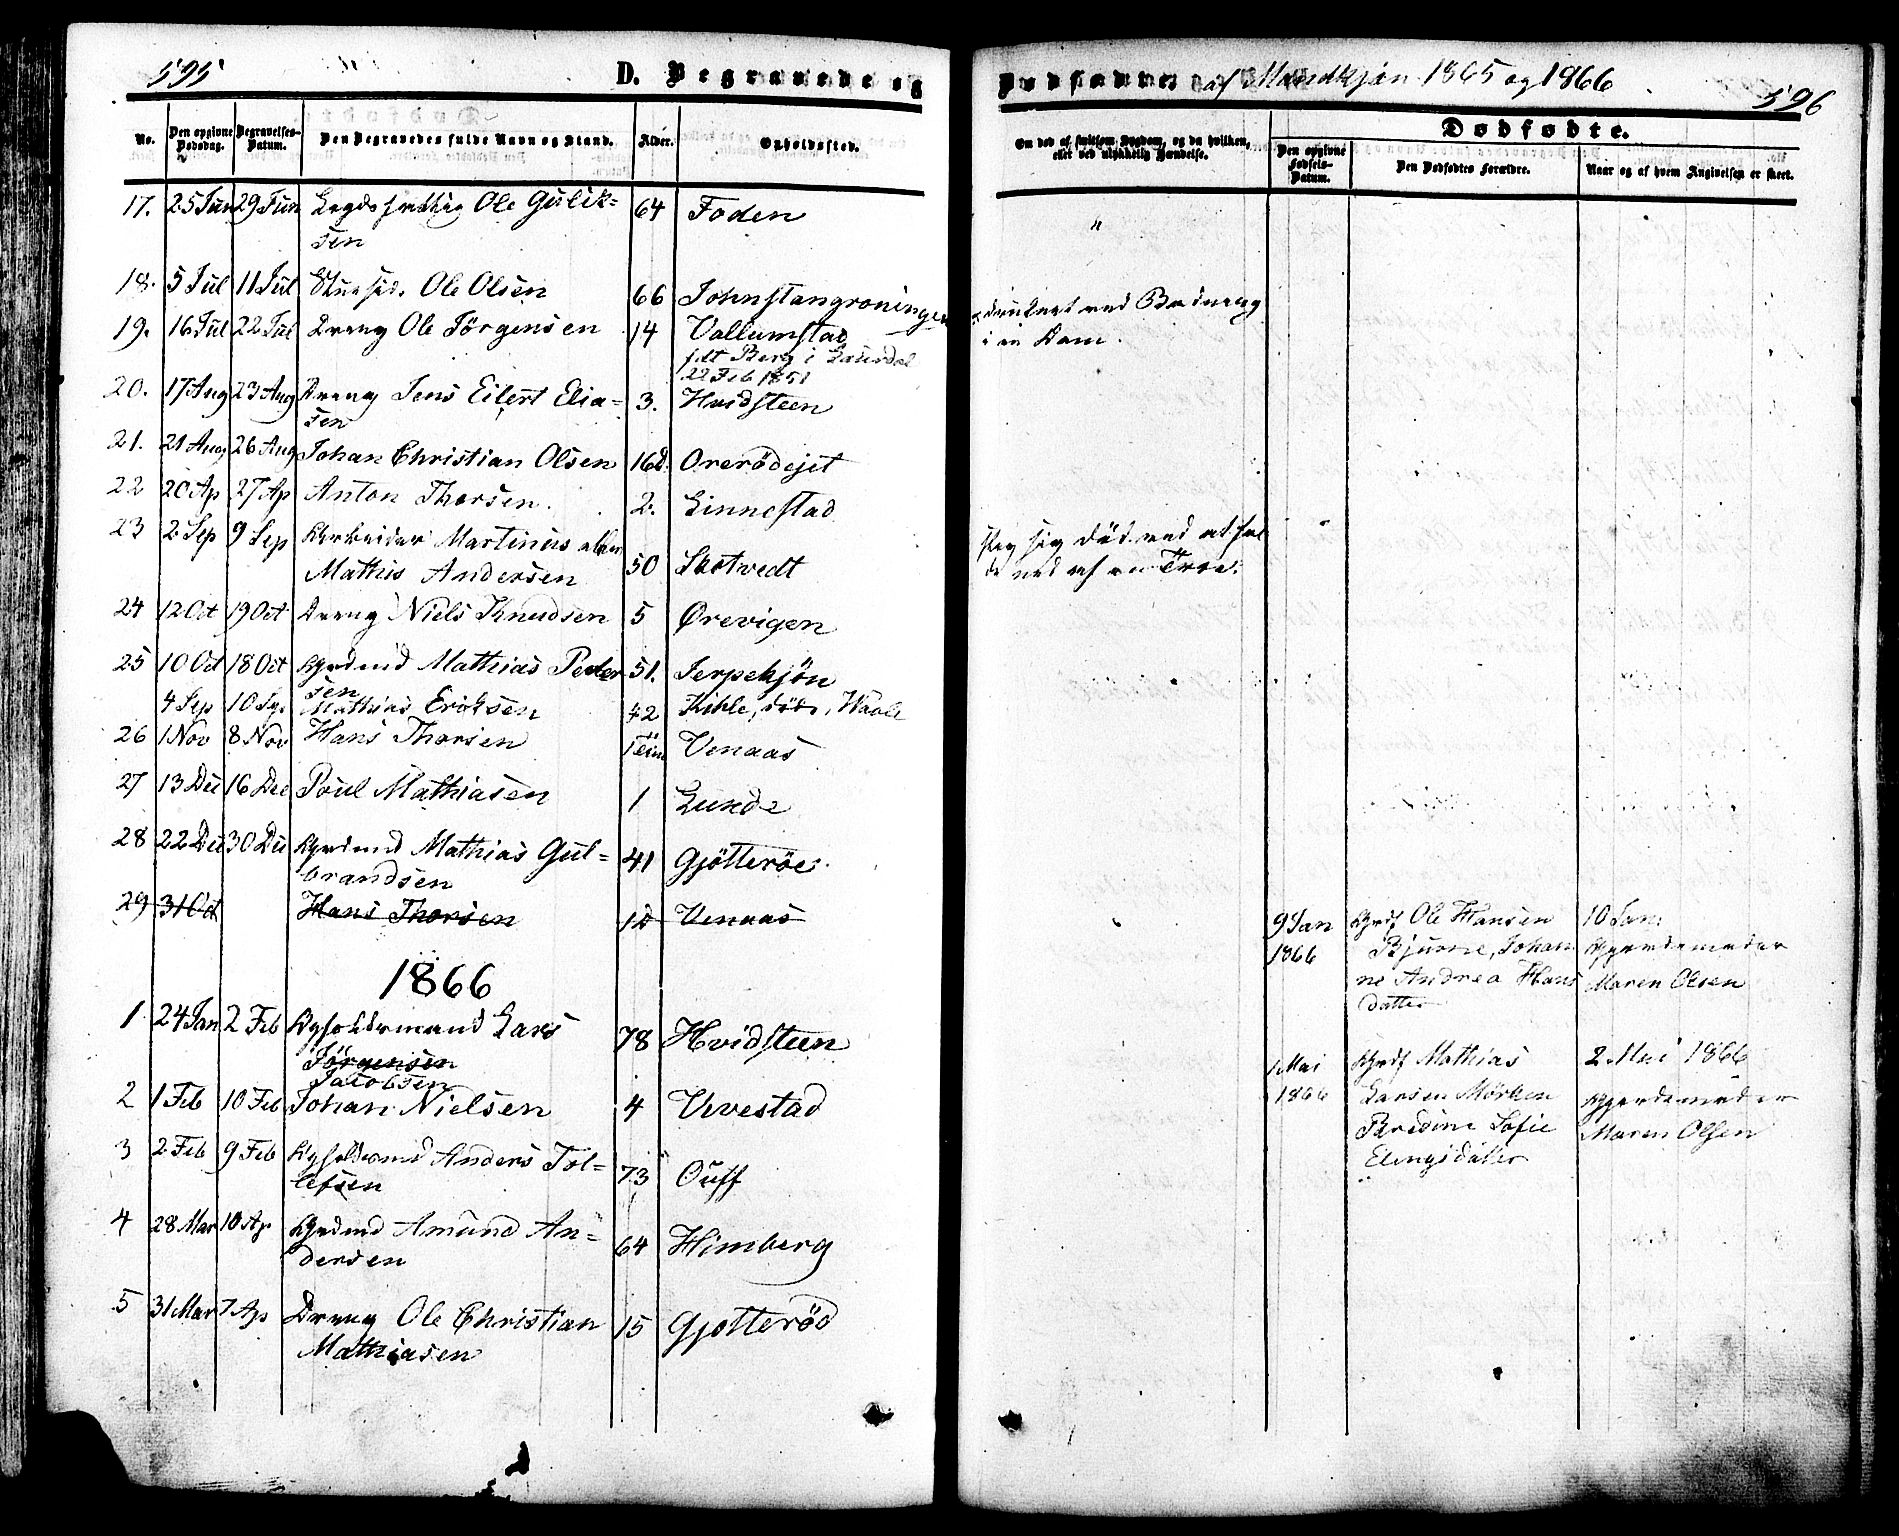 595
D. Begravede og
No.
Den opgivne Dødsdag.
Begravelses-Datum.
Den Begravedes fulde Navn og Stand.
Alder.
Opholdssted.
17. 25 Jun 29 Jun Ole Gulik=
sen 64 Foden
18. 5 Jul 11 Jul Ole Olsen 66 Johnstangroningen
19. 16 Jul 22 Jul Dreng Ole Jörgensen 14 Vallumstad
fdt Berg i
22 Feb 1851
20. 17 Aug 23 Aug Dreng Jens Eilert Elia=
sen 3. Hvidsteen
21. 21 Aug 26 Aug Johan Christian Olsen 16 d. Orerödejet
22 20 Ap 27 Ap Anton Thorsen. 2. Linnestad
23 2 Sep 9 Sep Arbeider Martinus eller
Mathis Andersen 50 Skotvedt
24 12 Oct 19 Oct Dreng Niels Knudsen 5 Ørevigen
25 10 Oct 18 Oct Grdmd Mathias Peder
sen 51. Jerpekjön
4 Sep 10 Sep Mathias Eriksen 42 Kihle,
26 1 Nov 8 Nov Hans Thorsen Venaas
27 13 Dec 16 Dec Poul Mathiasen 1 Lunde
28 22 Dec 30 Dec Grdmd Mathias Gul=
brandsen 41 Gjötteröe.
29 31 Oct Hans Thorsen Venaas
1866
1 24 Jan 2 Feb Lars
Jörgensen
Jacobsen 78 Hvidsteen
2 1 Feb 10 Feb Johan Nielsen 4 Vevestad
3 2 Feb 9 Feb Anders Tol=
lefsen 73 Ouff
4 28 Mar 10 Ap Grdmd Amund An=
dersen 64 Himberg
5 31 Mar 7 Ap Dreng Ole Christian
Mathiasen 15 Gjotteröd
Dødfødte af Mandkjön 1865 og 1866
596
Om død af smitsom Sygdom, og da hvilken, eller ved ulykkelig Hændelse.
Dødfødte.
Den opgivne Fødsels-Datum.
Den Dødfødtes Forældre.
Naar og af hvem Angivelsen er skeet.
"
druknet ved Badning
i en Dam.
slog sig död ved at fal
de ned af en Træe.
9 Jan
1866
Grdf Ole Hansen
Bjurne, Johan
ne Andrea Hans
datter
10 Jan.
Gjordemoder
Maren Olsen
1 Mai
1866
Grdf Mathias
Larsen Mörken
Bredine Sofie
Elingsdatter
2 Mai 1866
Gjordemoder
Maren Olsen